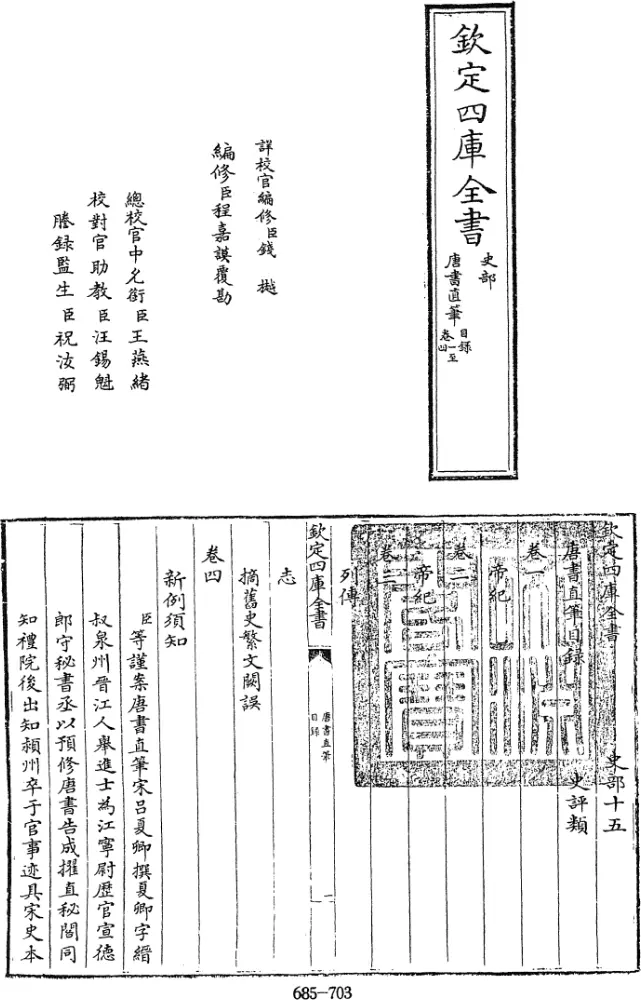 欽定四庫全書
史部
唐書直筆
目録
卷一至
四
詳校官編修臣錢樾
編修臣程嘉謨覆勘
總校官中允銜臣王燕緒
校對官助教臣汪錫魁
謄録監生臣祝汝弼
欽定四庫全書
史部十五
唐書直筆目録
史評類
卷一
帝紀
卷二
帝紀
卷三
列傳
欽定四庫全書
唐書直筆
目録
一
志
摘舊史繁文闕誤
卷四
新例須知
臣等謹案唐書直筆宋吕夏卿撰夏卿字縉
叔泉州晉江人舉進士為江寧尉歴官宣徳
郎守秘書丞以預修唐書告成擢直秘閣同
知禮院後出知潁州卒于官事迹具宋史本
685-703